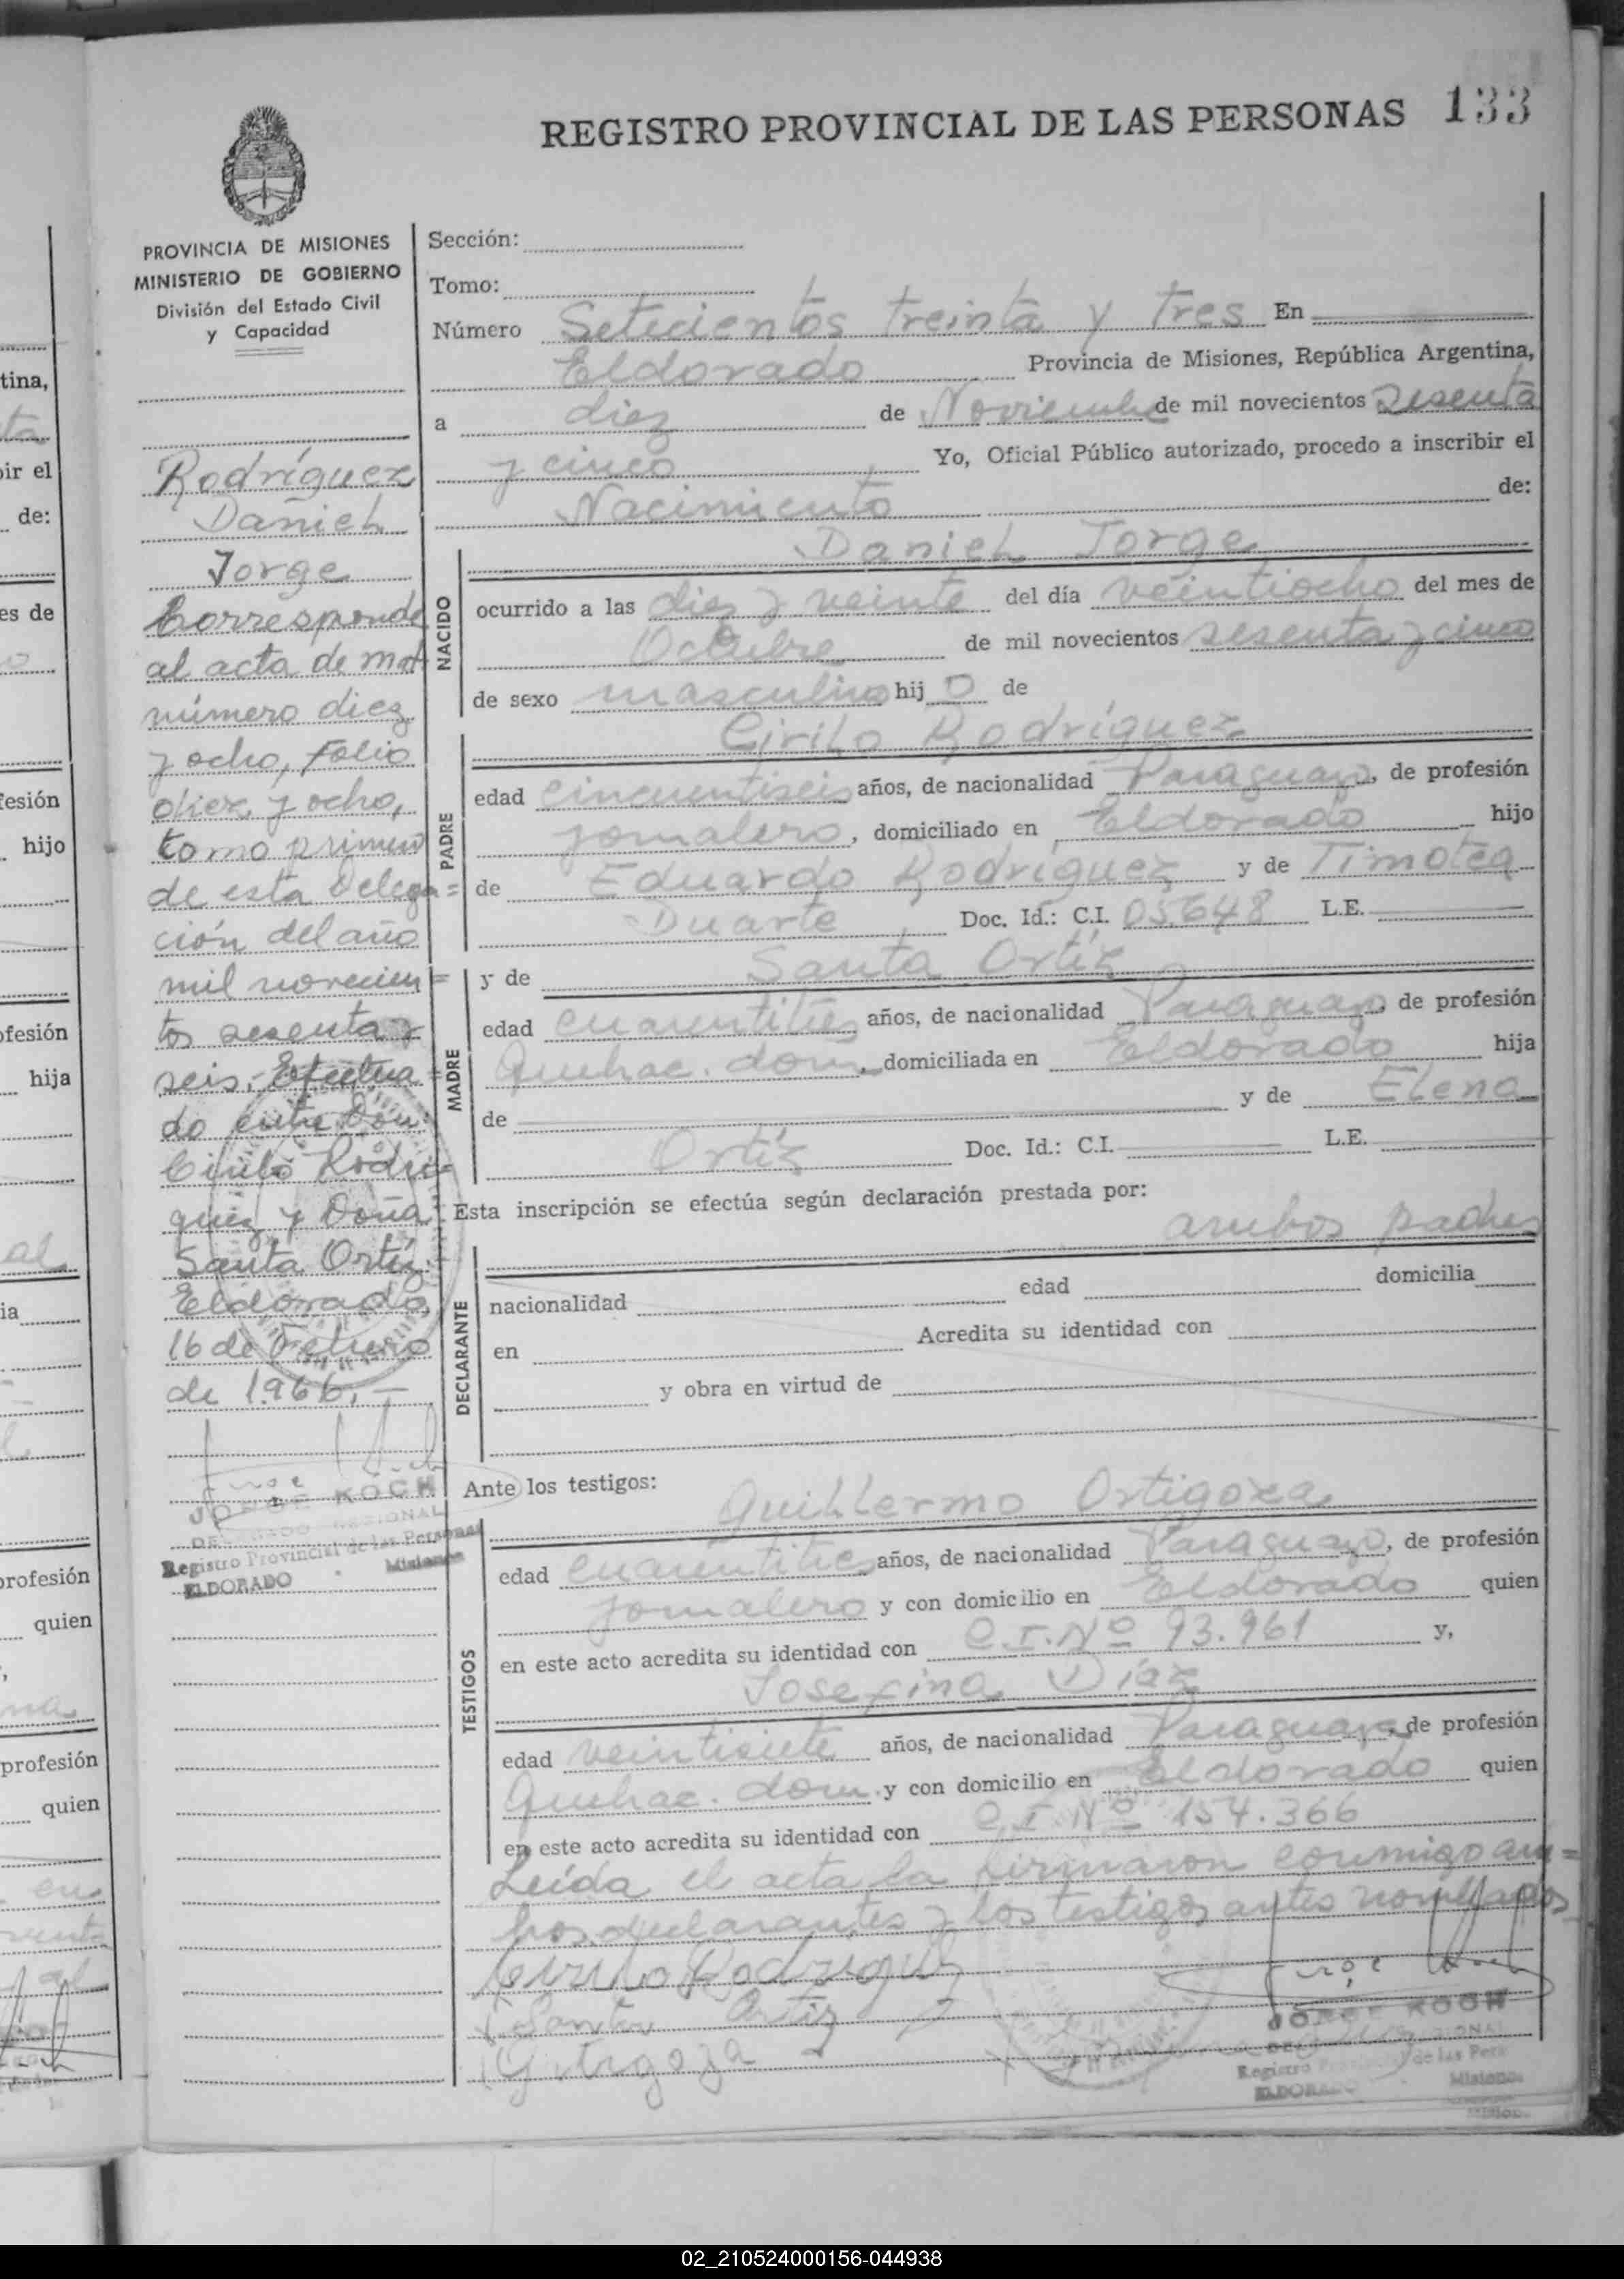 REGISTRO PROVINCIAL DE LAS PERSONAS 133
PROVINCIA DE MISIONES
MINISTERIO DE GOBIERNO
División del Estado Civil
y Capacidad
Rodríguez
Daniel
Jorge
Corresponde
al acta de mat.
número diez
y ocho, Folio
diez y ocho,
tomo primero
de esta Delega=
ción del año
mil novecien=
tos sesenta y
seis. Efectua=
do entre Don
Cirilo Rodrí=
guez y Doña
Santa Ortíz
Eldorado,
16 de Febrero
de 1.966.-
JORGE KOCH
DELEGADO REGIONAL
Registro Provincial de las Personas
ELDORADO - Misiones
Sección:
Tomo:
Número Setecientos treinta y tres En
Eldorado Provincia de Misiones, República Argentina,
a diez de Noviembre de mil novecientos sesenta
y cinco Yo, Oficial Público autorizado, procedo a inscribir el
Nacimiento de:
NACIDO
Daniel Jorge
ocurrido a las diez y veinte del día veintiocho del mes de
Octubre de mil novecientos sesenta y cinco
de sexo masculino hijo de
PADRE
Cirilo Rodríguez
edad cincuentiseis años, de nacionalidad Paraguayo, de profesión
jornalero, domiciliado en Eldorado hijo
de Eduardo Rodríguez y de Timotea
Duarte Doc. Id.: C.I. 05.648 L.E.
MADRE
y de Santa Ortíz
edad cuarentitres años, de nacionalidad Paraguaya, de profesión
Quehac. dom., domiciliada en Eldorado hija
de y de Elena
Ortíz Doc. Id.: C.I. L.E.
Esta inscripción se efectúa según declaración prestada por:
DECLARANTE
ambos padres
nacionalidad edad domicilia
en Acredita su identidad con
y obra en virtud de
Ante los testigos:
TESTIGOS
Guillermo Ortigoza
edad cuarentitres años, de nacionalidad Paraguayo, de profesión
jornalero y con domicilio en Eldorado quien
en este acto acredita su identidad con C.I. Nº 93.961 y,
Josefina Díaz
edad veintisiete años, de nacionalidad Paraguaya, de profesión
Quehac. dom. y con domicilio en Eldorado quien
en este acto acredita su identidad con C.I. Nº 154.366
Leída el acta la firmaron conmigo am=
bos declarantes y los testigos antes nombrados
Cirilo Rodriguez
Santa Ortiz
G Ortigoza
JORGE KOCH
Registro Provincial de las Pers
ELDORADO Misiones
02_210524000156-044938